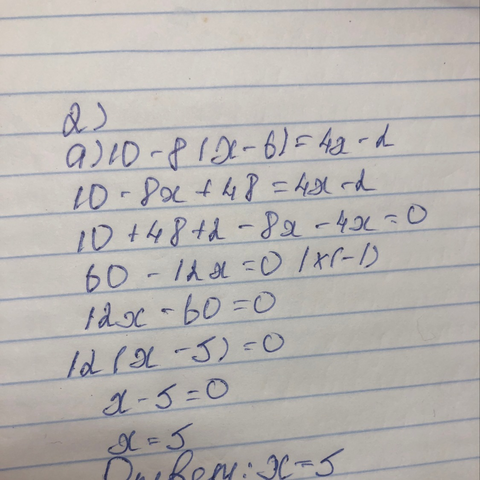 2)
а) 10 - 8(x - 6) = 4x - 2
10 - 8x + 48 = 4x - 2
10 + 48 + 2 - 8x - 4x = 0
60 - 12x = 0 | × (-1)
12x - 60 = 0
12(x - 5) = 0
x - 5 = 0
x = 5
Ответ: x = 5